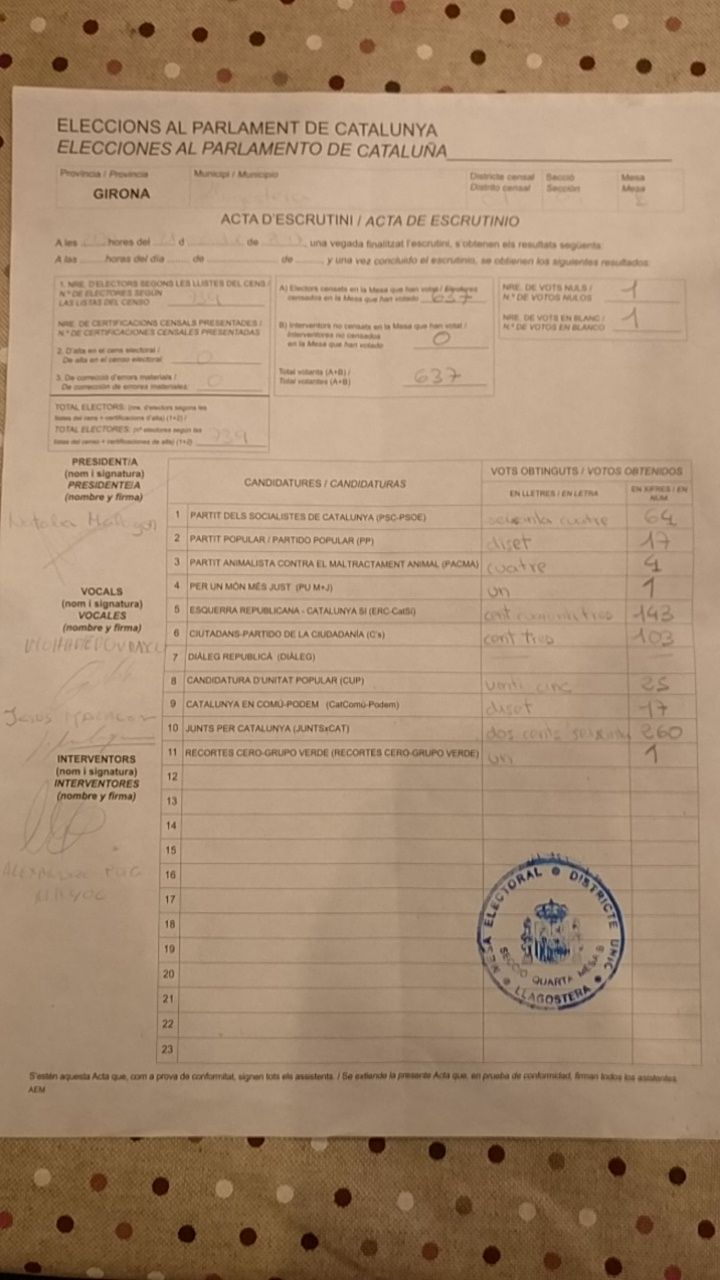 ELECCIONS AL PARLAMENT DE CATALUNYA
ELECCIONES AL PARLAMENTO DE CATALUÑA
Província / Provincia Municipi / Municipio Districte censal Secció Mesa
Distrito censal Sección Mesa
GIRONA
ACTA D'ESCRUTINI / ACTA DE ESCRUTINIO
A les hores del d de , una vegada finalitzat l'escrutini, s'obtenen els resultats següents:
A las horas del día de de , y una vez concluido el escrutinio, se obtienen los siguientes resultados:
1. NRE. D'ELECTORS SEGONS LES LLISTES DEL CENS /
N.º DE ELECTORES SEGÚN
LAS LISTAS DEL CENSO 739
NRE. DE CERTIFICACIONS CENSALS PRESENTADES /
N.º DE CERTIFICACIONES CENSALES PRESENTADAS
2. D'alta en el cens electoral /
De alta en el censo electoral: 0
3. De correcció d'errors materials /
De corrección de errores materiales: 0
TOTAL ELECTORS: (nre. d'electors segons les
llistes del cens + certificacions d'alta) (1+2) /
TOTAL ELECTORES: (nº electores según las
listas del censo + certificaciones de alta) (1+2) 739
A) Electors censats en la Mesa que han votat / Electores
censados en la Mesa que han votado 637
B) Interventors no censats en la Mesa que han votat /
Interventores no censados
en la Mesa que han votado 0
Total votants (A+B) /
Total votantes (A+B) 637
NRE. DE VOTS NULS /
N.º DE VOTOS NULOS 1
NRE. DE VOTS EN BLANC /
N.º DE VOTOS EN BLANCO 1
PRESIDENT/A
(nom i signatura)
PRESIDENTE/A
(nombre y firma)
Natalia
VOCALS
(nom i signatura)
VOCALES
(nombre y firma)
INTERVENTORS
(nom i signatura)
INTERVENTORES
(nombre y firma)
CANDIDATURES / CANDIDATURAS VOTS OBTINGUTS / VOTOS OBTENIDOS
EN LLETRES / EN LETRA EN XIFRES / EN NÚM.
1 PARTIT DELS SOCIALISTES DE CATALUNYA (PSC-PSOE) seixanta cuatre 64
2 PARTIT POPULAR / PARTIDO POPULAR (PP) diset 17
3 PARTIT ANIMALISTA CONTRA EL MALTRACTAMENT ANIMAL (PACMA) cuatre 4
4 PER UN MÓN MÉS JUST (PUM+J) un 1
5 ESQUERRA REPUBLICANA - CATALUNYA SÍ (ERC-CatSí) 143
6 CIUTADANS-PARTIDO DE LA CIUDADANÍA (C's) cent tres 103
7 DIÀLEG REPUBLICÀ (DIÀLEG)
8 CANDIDATURA D'UNITAT POPULAR (CUP) vinti cinc 25
9 CATALUNYA EN COMÚ-PODEM (CatComú-Podem) diset 17
10 JUNTS PER CATALUNYA (JUNTSxCAT) dos cents seixanta 260
11 RECORTES CERO-GRUPO VERDE (RECORTES CERO-GRUPO VERDE) un 1
12
13
14
15
16
17
18
19
20
21
22
23
MESA ELECTORAL DISTRICTE UNIC
SECCIO QUARTA MESA B
LLAGOSTERA
S'estén aquesta Acta que, com a prova de conformitat, signen tots els assistents. / Se extiende la presente Acta que, en prueba de conformidad, firman todos los asistentes.
AEM